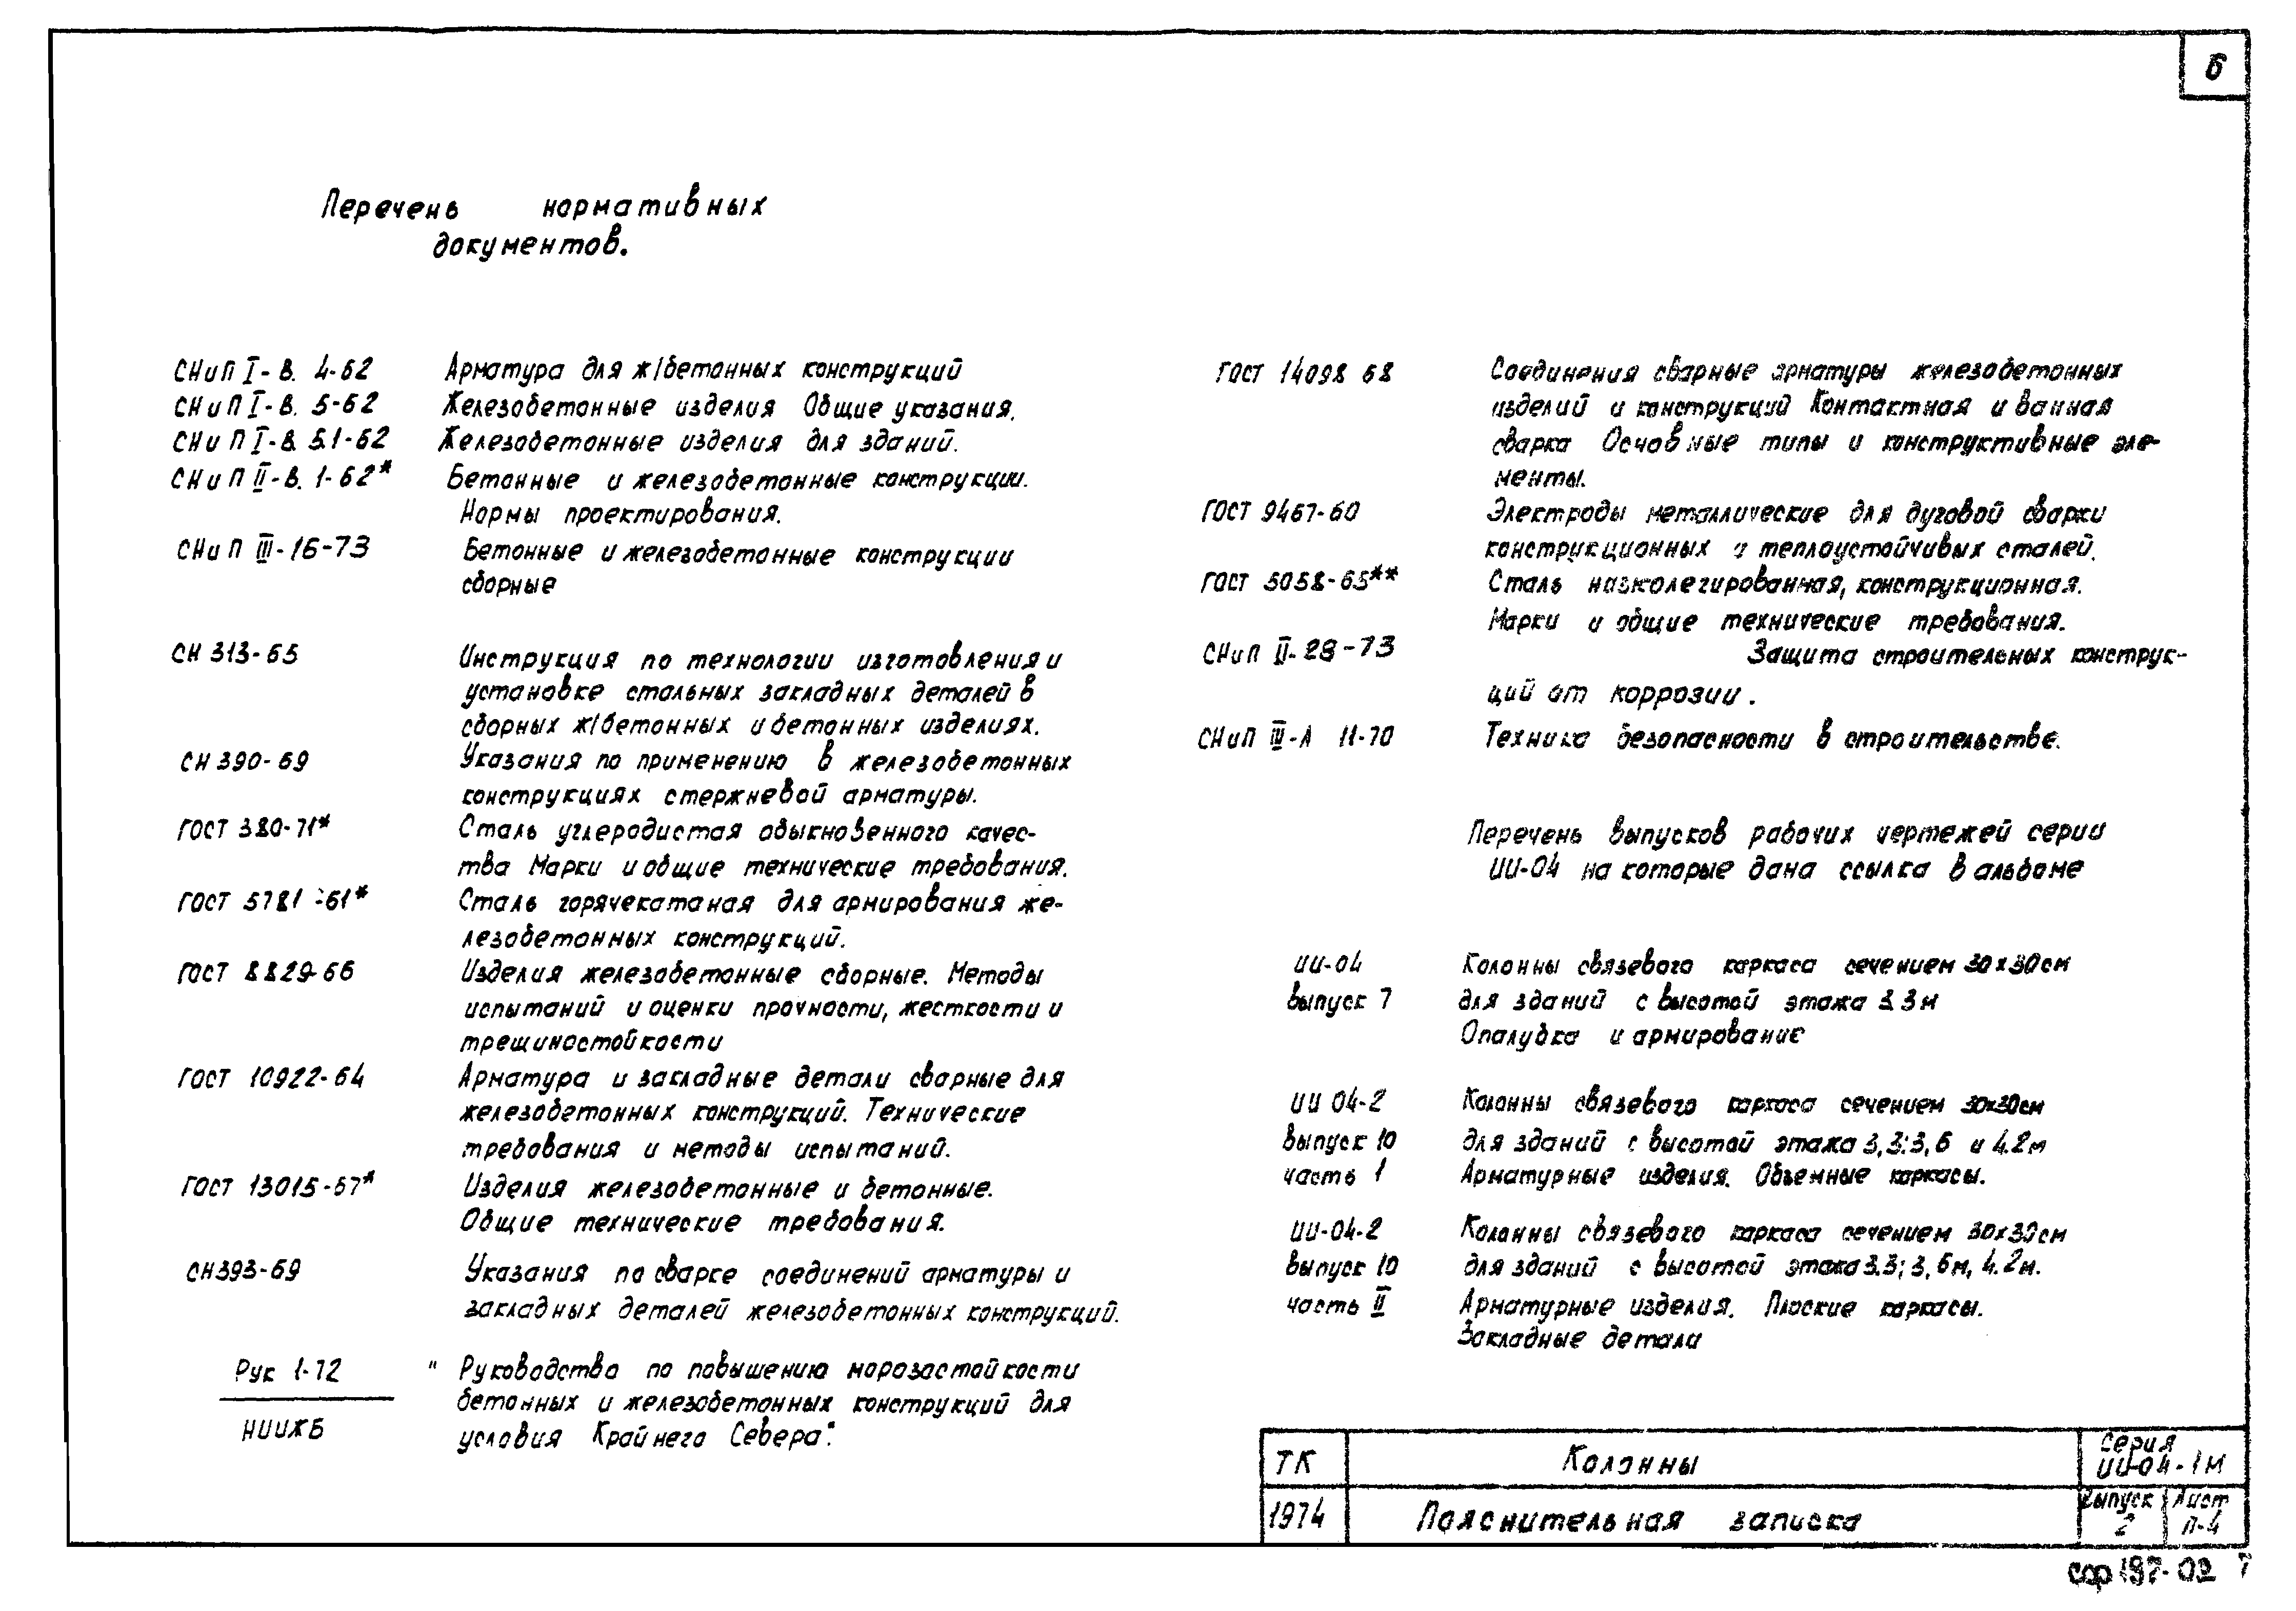 6
Перечень нормативных
документов.
СНиП I-В. 4-62 Арматура для ж/бетонных конструкций
СНиП I-В. 5-62 Железобетонные изделия Общие указания.
СНиП I-В 5.1-62 Железобетонные изделия для зданий.
СНиП II-В. 1-62* Бетонные и железобетонные конструкции.
Нормы проектирования.
СНиП III-16-73 Бетонные и железобетонные конструкции
сборные
СН 313-65 Инструкция по технологии изготовления и
установке стальных закладных деталей в
сборных ж/бетонных и бетонных изделиях.
СН 390-69 Указания по применению в железобетонных
конструкциях стержневой арматуры.
ГОСТ 380-71* Сталь углеродистая обыкновенного качес-
тва Марки и общие технические требования.
ГОСТ 5781-61* Сталь горячекатаная для армирования же-
лезобетонных конструкций.
ГОСТ 8829-66 Изделия железобетонные сборные. Методы
испытаний и оценки прочности, жесткости и
трещиностойкости
ГОСТ 10922-64 Арматура и закладные детали сварные для
железобетонных конструкций. Технические
требования и методы испытаний.
ГОСТ 13015-67* Изделия железобетонные и бетонные.
Общие технические требования.
СН393-69 Указания по сварке соединений арматуры и
закладных деталей железобетонных конструкций.
Рук 1-72 " Руководство по повышению морозастойкости
бетонных и железобетонных конструкций для
НИИЖБ условия Крайнего Севера".
ГОСТ 14098 68 Соединения сварные арматуры железобетонных
изделий и конструкций Контактная и ванная
сварка Основные типы и конструктивные эле-
менты.
ГОСТ 9467-60 Электроды металлические для дуговой сварки
конструкционных и теплоустойчивых сталей.
ГОСТ 5058-65** Сталь низколегированная, конструкционная.
Марки и общие технические требования.
СНиП II-28-73 Защита строительных конструк-
ций от коррозии.
СНиП III-А 11-70 Техника безопасности в строительстве.
Перечень выпусков рабочих чертежей серии
ИИ-04 на которые дана ссылка в альбоме
ИИ-04 Колонны связевого каркаса сечением 30х30см
выпуск 7 для зданий с высотой этажа 3.3м
Опалубка и армирование
ИИ 04-2 Колонны связевого каркаса сечением 30х30см
выпуск 10 для зданий с высотой этажа 3,3; 3,6 и 4.2м
часть 1 Арматурные изделия. Объемные каркасы.
ИИ-04-2 Колонны связевого каркаса сечением 30х30см
выпуск 10 для зданий с высотой этажа 3.3; 3,6м, 4.2м.
часть II Арматурные изделия. Плоские каркасы.
Закладные детали
ТК Колонны Серия
ИИ-04-1М
1974 Пояснительная записка Выпуск Лист
2 П-4
сор 197-02 7